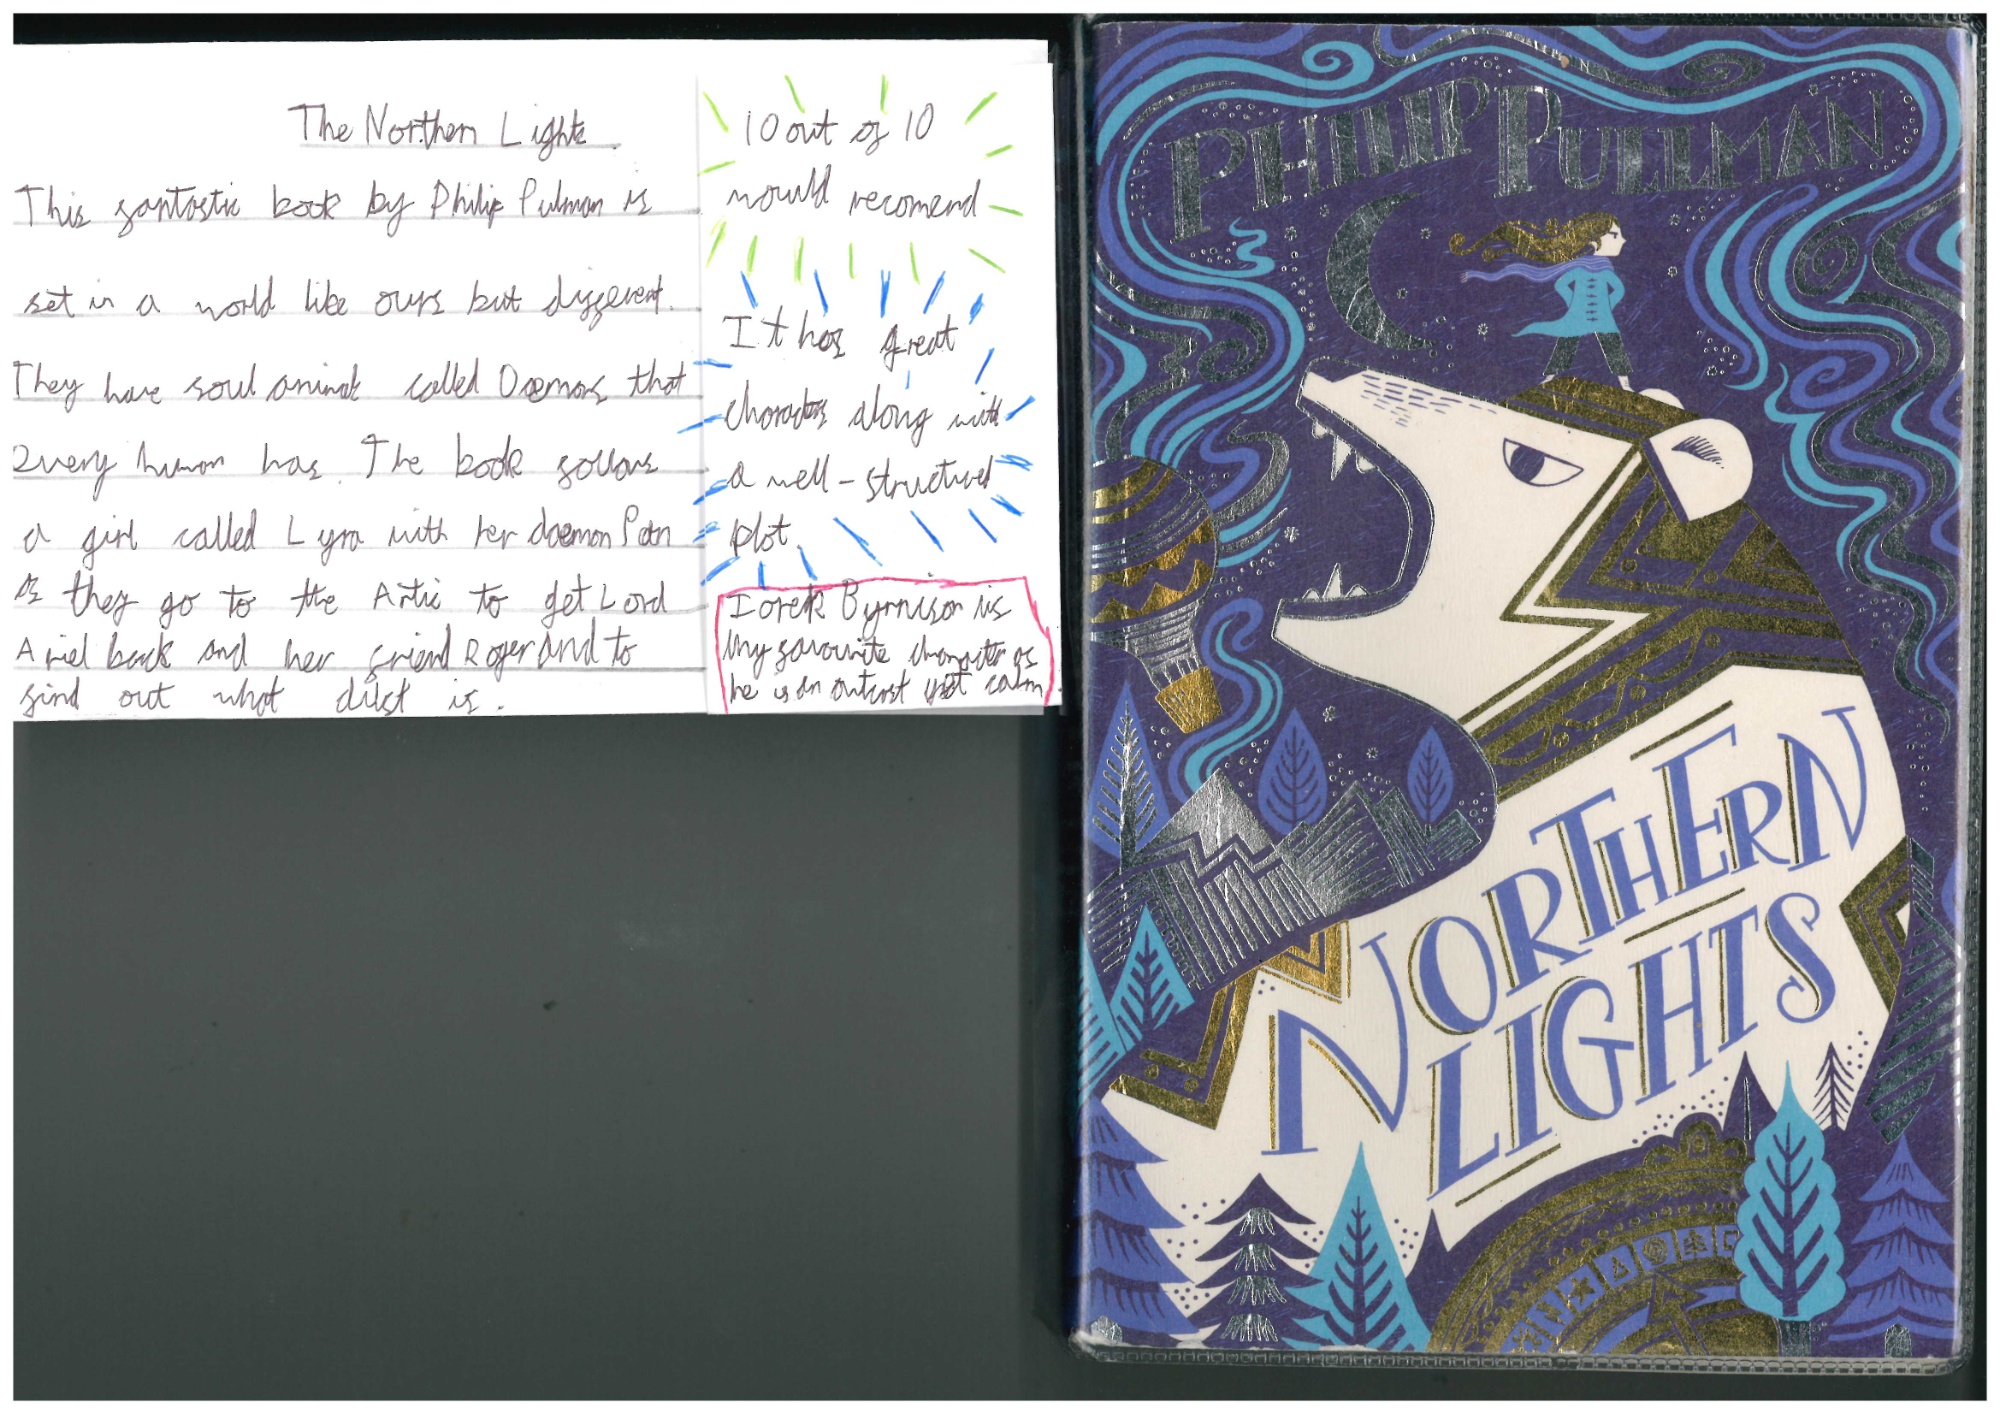 The Northen Lights
This fantastic book by Philip Pulman is
set in a world like ours but different.
They have soul animals called Daemons that
every human has. The book follows
a girl called Lyra with her daemon Pan
as they go to the Artic to get Lord
Ariel back and her friend Roger and to
find out what dust is.
10 out of 10
would recomend
It has great
characters along with
a well-structured
plot.
Iorek Byrnison is
my favourite character as
he is an outcast yet calm.
PHILIP PULLMAN
NORTHERN
LIGHTS